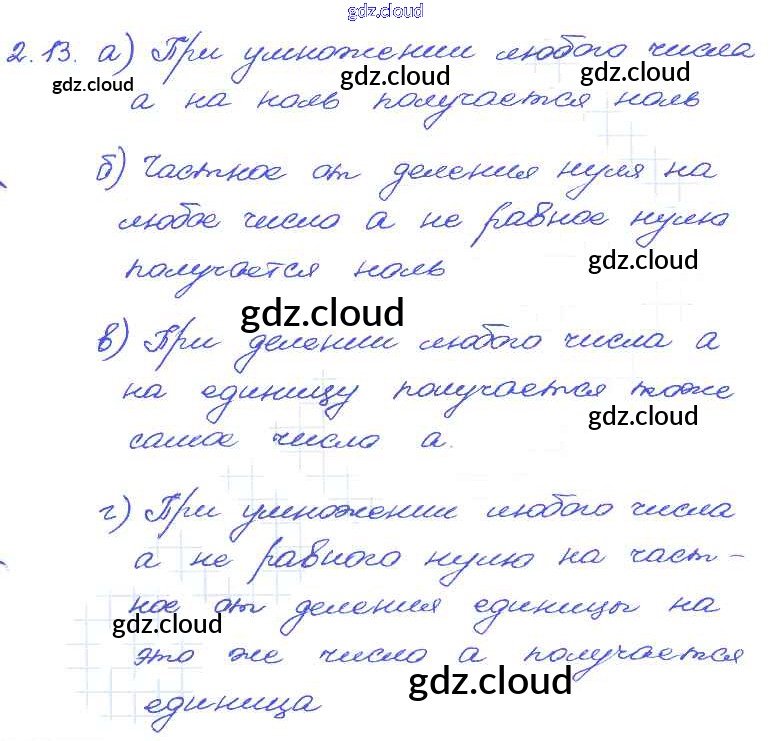 gdz.cloud
2.13. а) При умножении любого числа
gdz.cloud gdz.cloud gdz.cloud
а на ноль получается ноль
б) Частное от деления нуля на
любое число а не равное нулю
gdz.cloud
получается ноль
gdz.cloud
в) При делении любого числа а
на единицу получается тоже
gdz.cloud
самое число а.
г) При умножении любого числа
а не равного нулю на част-
ное от деления единицы на
gdz.cloud
это же число а получается
gdz.cloud
единица